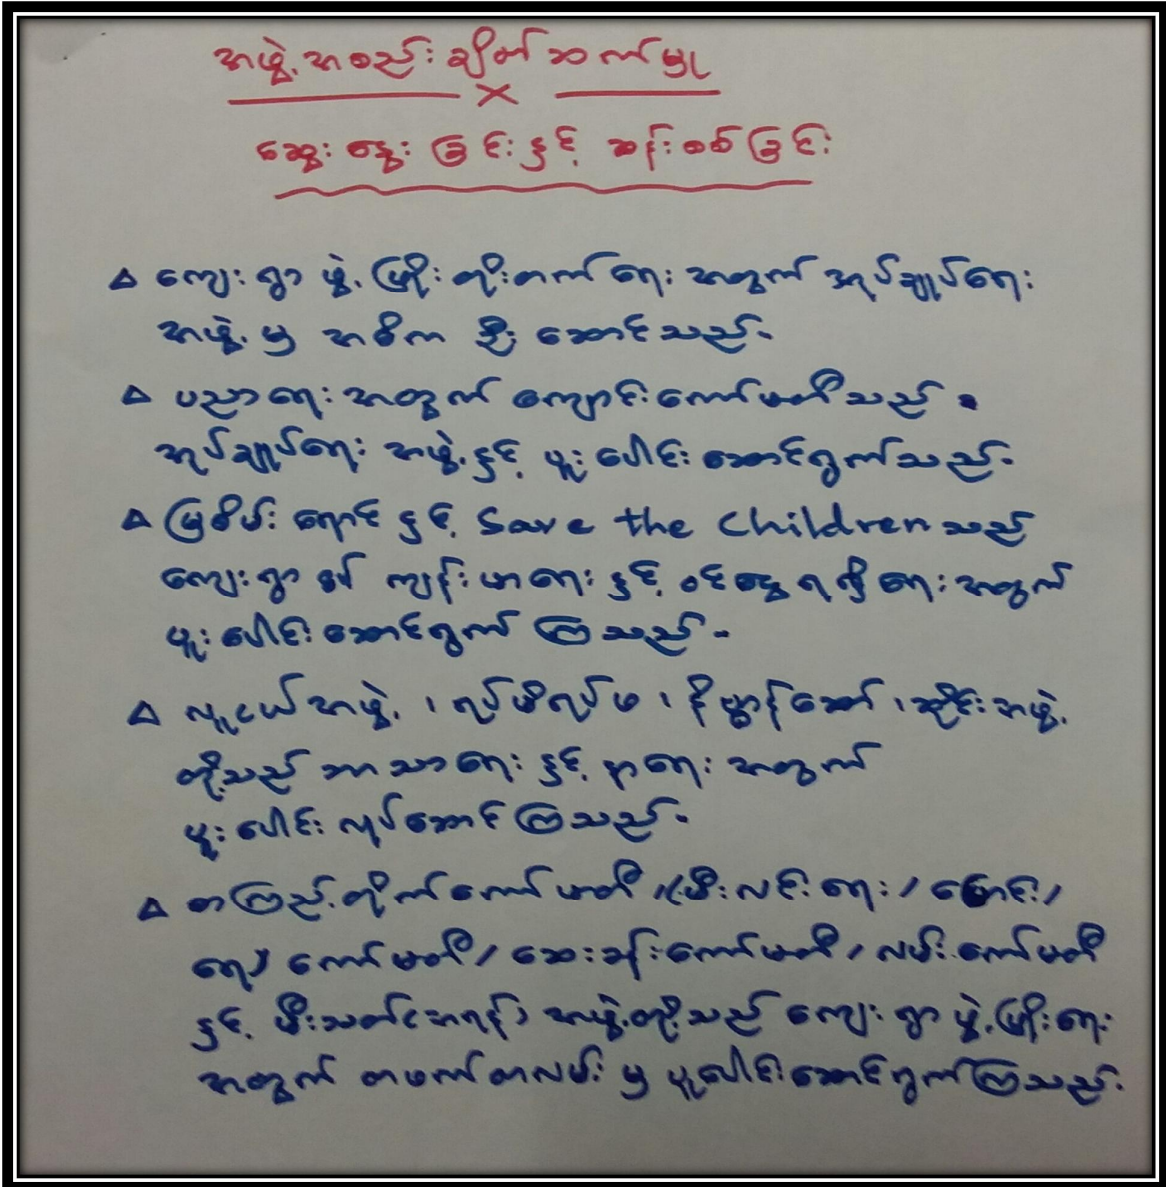 အဖွဲ့အစည်းချိတ်ဆက်မှု
×
ဆွေးနွေးခြင်းနှင့် ဆန်းစစ်ခြင်း
Δ ကျေးရွာ ဖွံ့ဖြိုးတိုးတက်ရေး အတွက် အုပ်ချုပ်ရေး
အဖွဲ့မှ အဓိက ဦးဆောင်သည်။
Δ ပညာရေးအတွက် ကျောင်းကော်မတီသည်
အုပ်ချုပ်ရေး အဖွဲ့နှင့် ပူးပေါင်းဆောင်ရွက်သည်။
Δ မြစိမ်းရောင်နှင့် Save the Children သည်
ကျေးရွာ၏ ကျန်းမာရေးနှင့် ဝင်ငွေရရှိရေးအတွက်
ပူးပေါင်းဆောင်ရွက် ကြသည်။
Δ လူငယ်အဖွဲ့၊ လုပ်ဖိလုပ်ဖ၊ နိဗ္ဗာန်ဆော်၊ ဆိုင်းအဖွဲ့
တို့သည် ဘာသာရေးနှင့် နာရေး အတွက်
ပူးပေါင်း လုပ်ဆောင်ကြသည်။
Δ စာကြည့်တိုက်ကော်မတီ / (မီးလင်းရေး /
ရေ) ကော်မတီ / ဆေးခန်းကော်မတီ / လမ်းကော်မတီ
နှင့် မီးသတ်(အရန်) အဖွဲ့တို့သည် ကျေးရွာ ဖွံ့ဖြိုးရေး
အတွက် တဖက်တလမ်းမှ ပူးပေါင်းဆောင်ရွက်ကြသည်။